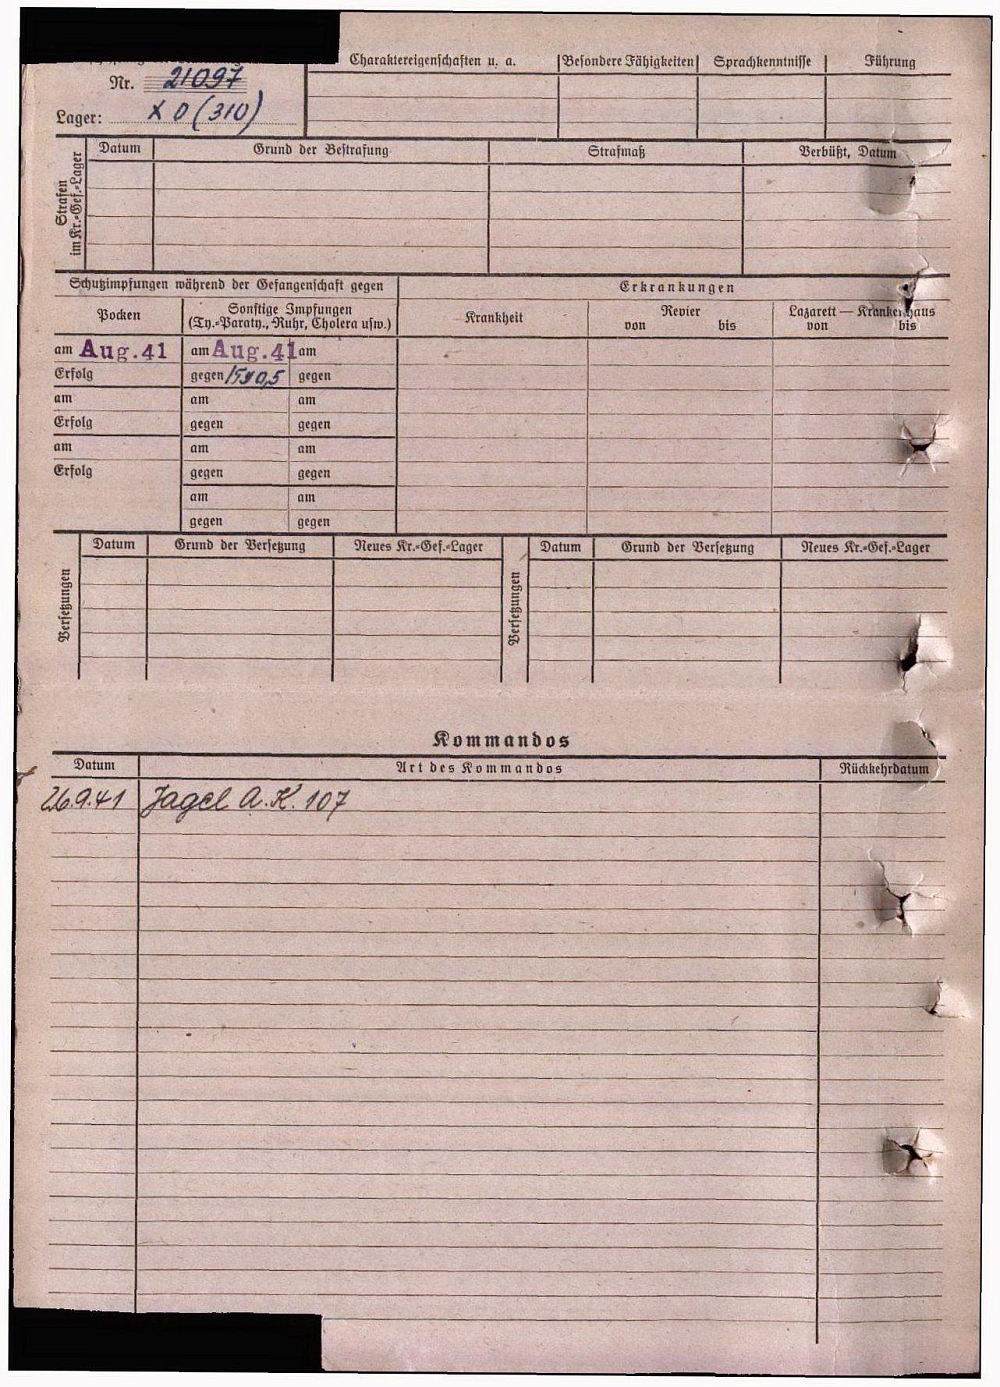 Nr. 21097
Lager: X D (310)
Charaktereigenschaften u. a. Besondere Fähigkeiten Sprachkenntnisse Führung
Strafen im Kr.-Gef.-Lager
Datum Grund der Bestrafung Strafmaß Verbüßt, Datum
Schutzimpfungen während der Gefangenschaft gegen Erkrankungen
Pocken Sonstige Impfungen (Ty.-Paraty., Ruhr, Cholera usw.) Krankheit Revier von bis Lazarett — Krankenhaus von bis
am Aug. 41 am Aug. 41 am
Erfolg gegen gegen
am am am
Erfolg gegen gegen
am am am
Erfolg gegen gegen
am am
gegen gegen
Versetzungen Datum Grund der Versetzung Neues Kr.-Gef.-Lager Versetzungen Datum Grund der Versetzung Neues Kr.-Gef.-Lager
Kommandos
Datum Art des Kommandos Rückkehrdatum
26.9.41 Jagel A.K. 107